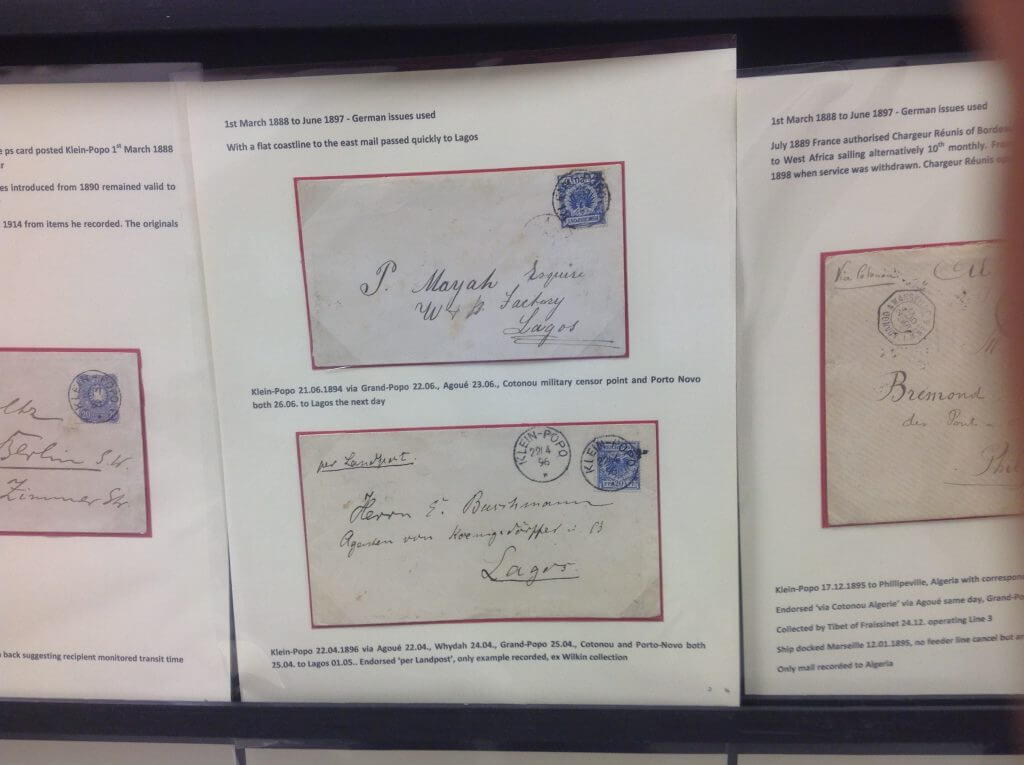 e ps card posted Klein-Popo 1st March 1888
es introduced from 1890 remained valid to
1914 from items he recorded. The originals
KLEIN-POPO
20
Berlin S.W.
Zimmer Str.
back suggesting recipient monitored transit time
1st March 1888 to June 1897 - German issues used
With a flat coastline to the east mail passed quickly to Lagos
P. Mayah Esquire
W & B. Factory
Lagos
Klein-Popo 21.06.1894 via Grand-Popo 22.06., Agoué 23.06., Cotonou military censor point and Porto Novo
both 26.06. to Lagos the next day
per Landpost.
KLEIN-POPO
22/4
96
KLEIN-POPO
Herrn E. Buschmann
Agenten von Koenigsdörffer
Lagos.
Klein-Popo 22.04.1896 via Agoué 22.04., Whydah 24.04., Grand-Popo 25.04., Cotonou and Porto-Novo both
25.04. to Lagos 01.05.. Endorsed 'per Landpost', only example recorded, ex Wilkin collection
1st March 1888 to June 1897 - German issues used
July 1889 France authorised Chargeur Réunis of Bordeau
to West Africa sailing alternatively 10th monthly. Fro
1898 when service was withdrawn. Chargeur Réunis op
Via Cotonou
Bremond
Phi
Klein-Popo 17.12.1895 to Phillipeville, Algeria with correspon
Endorsed 'via Cotonou Algerie' via Agoué same day, Grand-Po
Collected by Tibet of Fraissinet 24.12. operating Line 3
Ship docked Marseille 12.01.1895, no feeder line cancel but an
Only mail recorded to Algeria